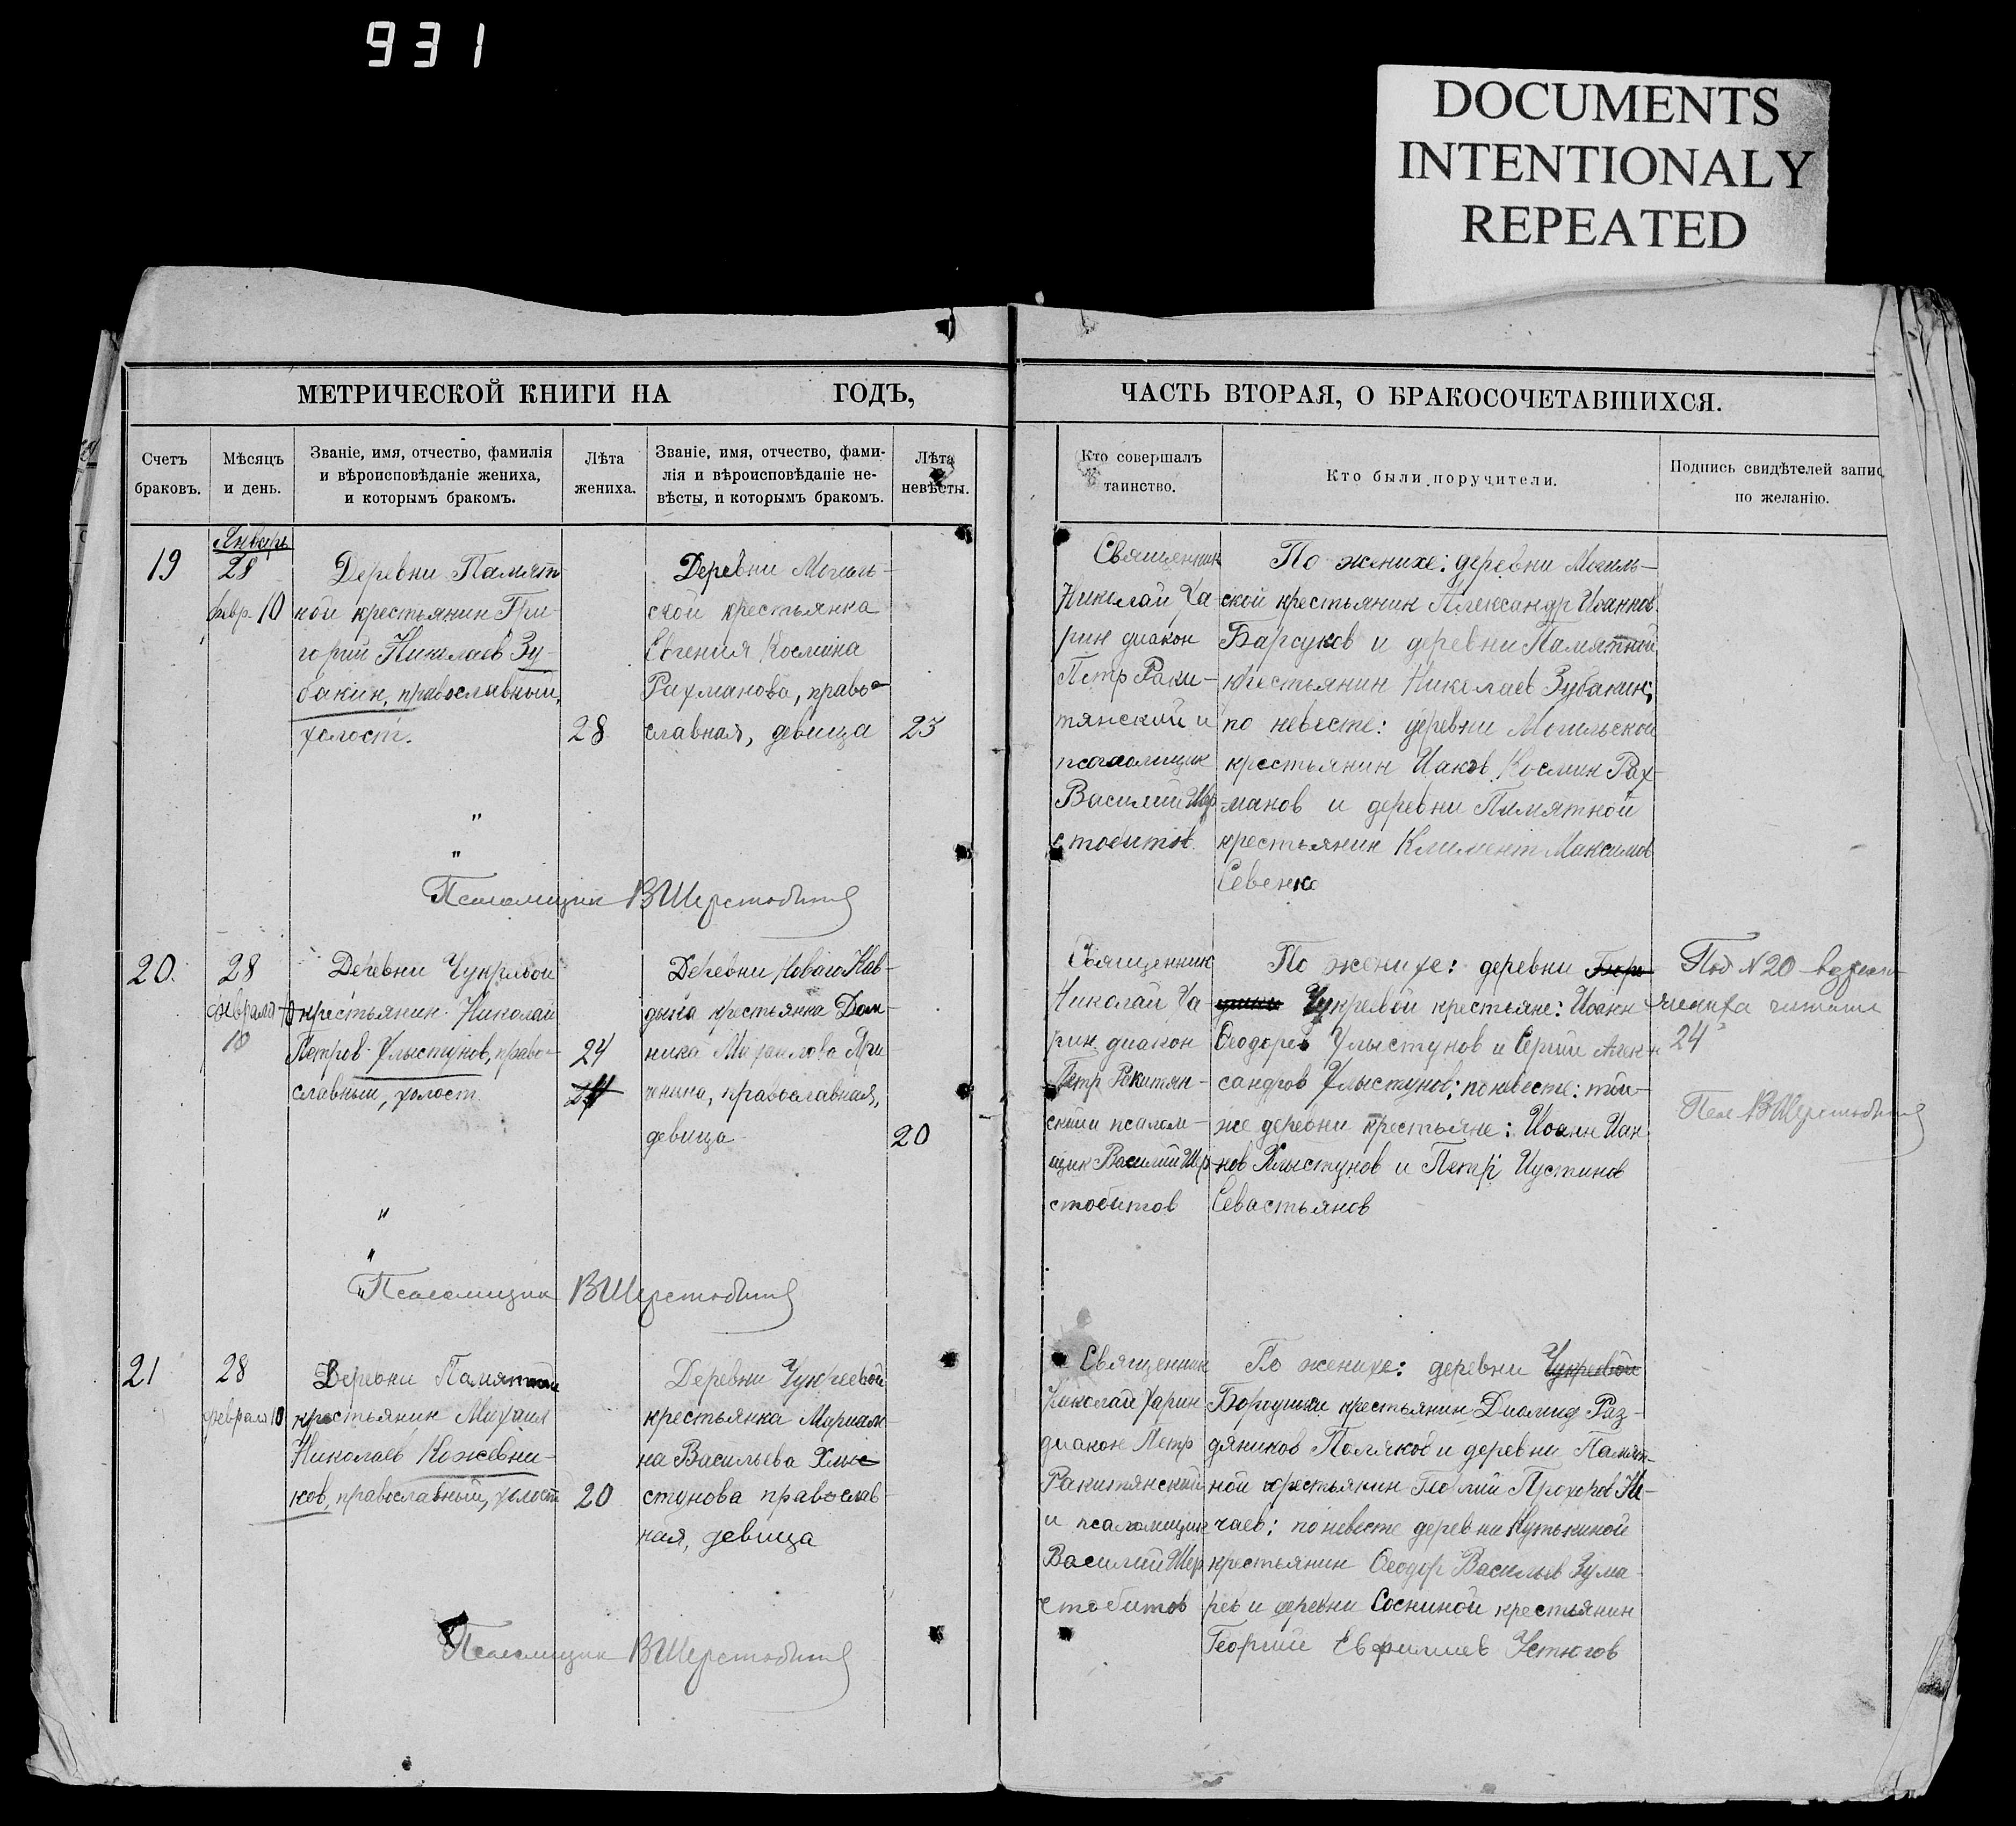 931
DOCUMENTS
INTENTIONALY
REPEATED
МЕТРИЧЕСКОЙ КНИГИ НА ГОДЪ,
ЧАСТЬ ВТОРАЯ, О БРАКОСОЧЕТАВШИХСЯ.
Счетъ
браковъ.
Мѣсяцъ
и день.
Званіе, имя, отчество, фамилія
и вѣроисповѣданіе жениха,
и которымъ бракомъ.
Лѣта
жениха.
Званіе, имя, отчество, фами-
лія и вѣроисповѣданіе не-
вѣсты, и которымъ бракомъ.
Лѣта
невѣсты.
Кто совершалъ
таинство.
Кто были поручители.
Подпись свидѣтелей запис
по желанію.
19
Январь
28
февр. 10
Деревни Памят
ной крестьянин Гри-
горий Николаев Зу-
бакин, православный,
холост.
28
Деревни Могиль-
ской крестьянка
Евгения Космина
Рахманова, право-
славная, девица
23
Священник
Николай Ча-
рин диакон
Петр Раки-
тянский и
псаломщик
Василий Шер
стобитов.
По женихе: деревни Могиль-
ской крестьянин Александр Иоаннов
Барсуков и деревни Памятной
крестьянин Николаев Зубакин;
по невесте: деревни Могильской
крестьянин Иаков Космин Рах-
манов и деревни Памятной
крестьянин Климент Максимов
Севенко
Псаломщик ВШерстобитов
20.
28
февраля
10
Деревни Чукреевой
крестьянин Николай
Петров Хлыстунов, право-
славный, холост
24
24
Деревни Новаго Кав-
дыка крестьянка Дом-
ника Михаилова
православная,
девица
20
Священник
Николай Ча-
рин диакон
Петр Ракитян-
ский псалом-
щик Василий Шер
стобитов
По женихе: деревни
Чукреевой крестьяне: Иоанн
Феодоров Хлыстунов и Сергий Алек-
сандров Хлыстунов; по невесте: той-
же деревни крестьяне: Иоанн Иан
нов Хлыстунов и Петр Иустинов
Севастьянов
Под N 20 возраст
жениха читать
24
Псал ВШерстобитов
Псаломщик ВШерстобитов
21
28
февраля 10
Деревни Памятной
крестьянин Михаил
Николаев Кожевни-
ков, православный, холост
20
Деревни Чукреевой
крестьянка Мариам-
на Васильева Хлы
стунова православ-
ная, девица
Священник
Николай Чарин
диакон Петр
Ракитянский
и псаломщик
Василий Шер
стобитов
По женихе: деревни Чукреевой
крестьянин Диомид
Поляков и деревни Памят-
ной крестьянин Прохоров Не-
чаев; по невесте деревни Кутькиной
крестьянин Феодор Васильев Зума
рев и деревни Сосниной крестьянин
Георгий Евфимиев Устюгов
Псаломщик ВШерстобитов